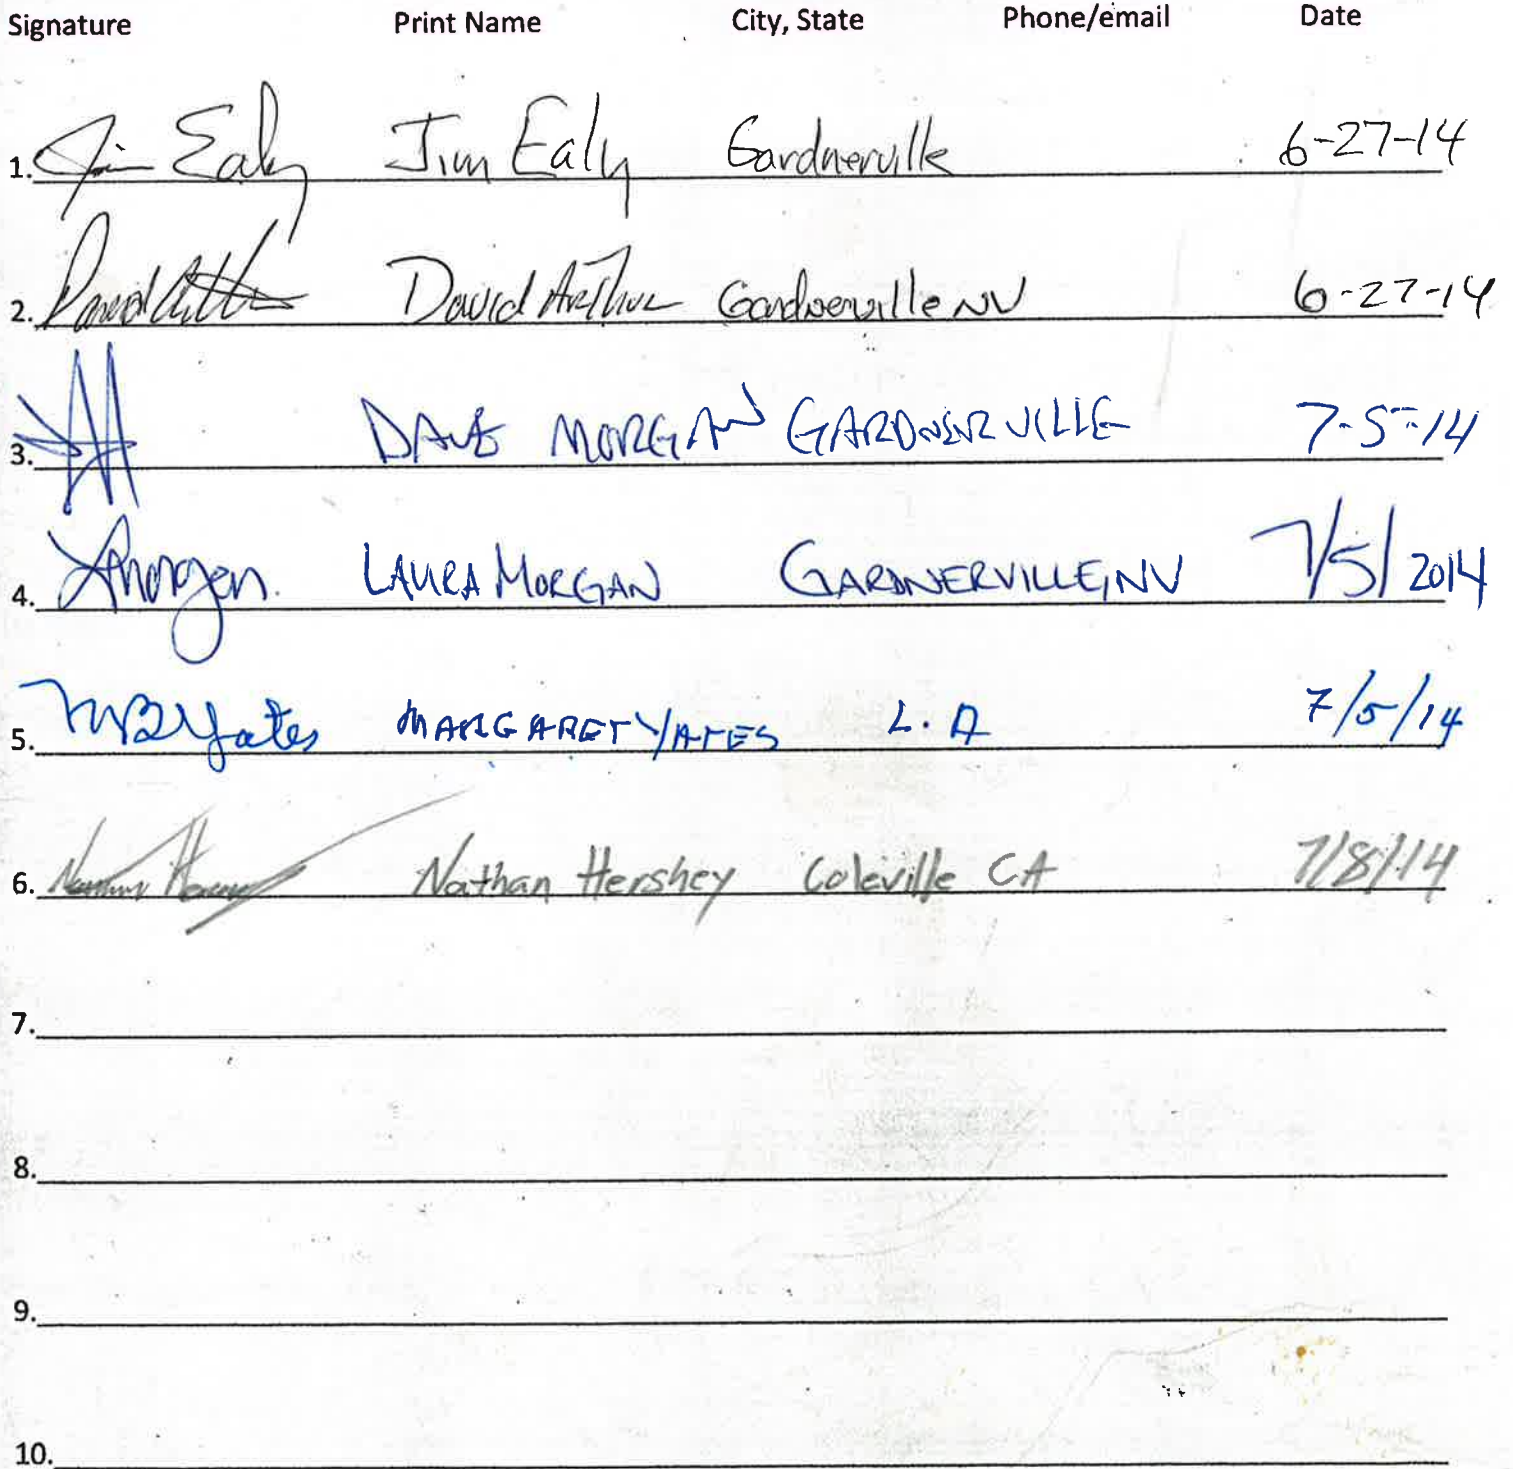 Signature Print Name City, State Phone/email Date
1. Jim Ealy Jim Ealy Gardnerville 6-27-14
2. David Arthur David Arthur Gardnerville NV 6-27-14
3. DAVE MORGAN GARDNERVILLE 7-5-14
4. LMorgan. LAURA MORGAN GARDNERVILLE, NV 7/5/2014
5. MBYates MARGARET YATES L.A 7/5/14
6. Nathan Hershey Nathan Hershey Coleville CA 7/8/14
7.
8.
9.
10.